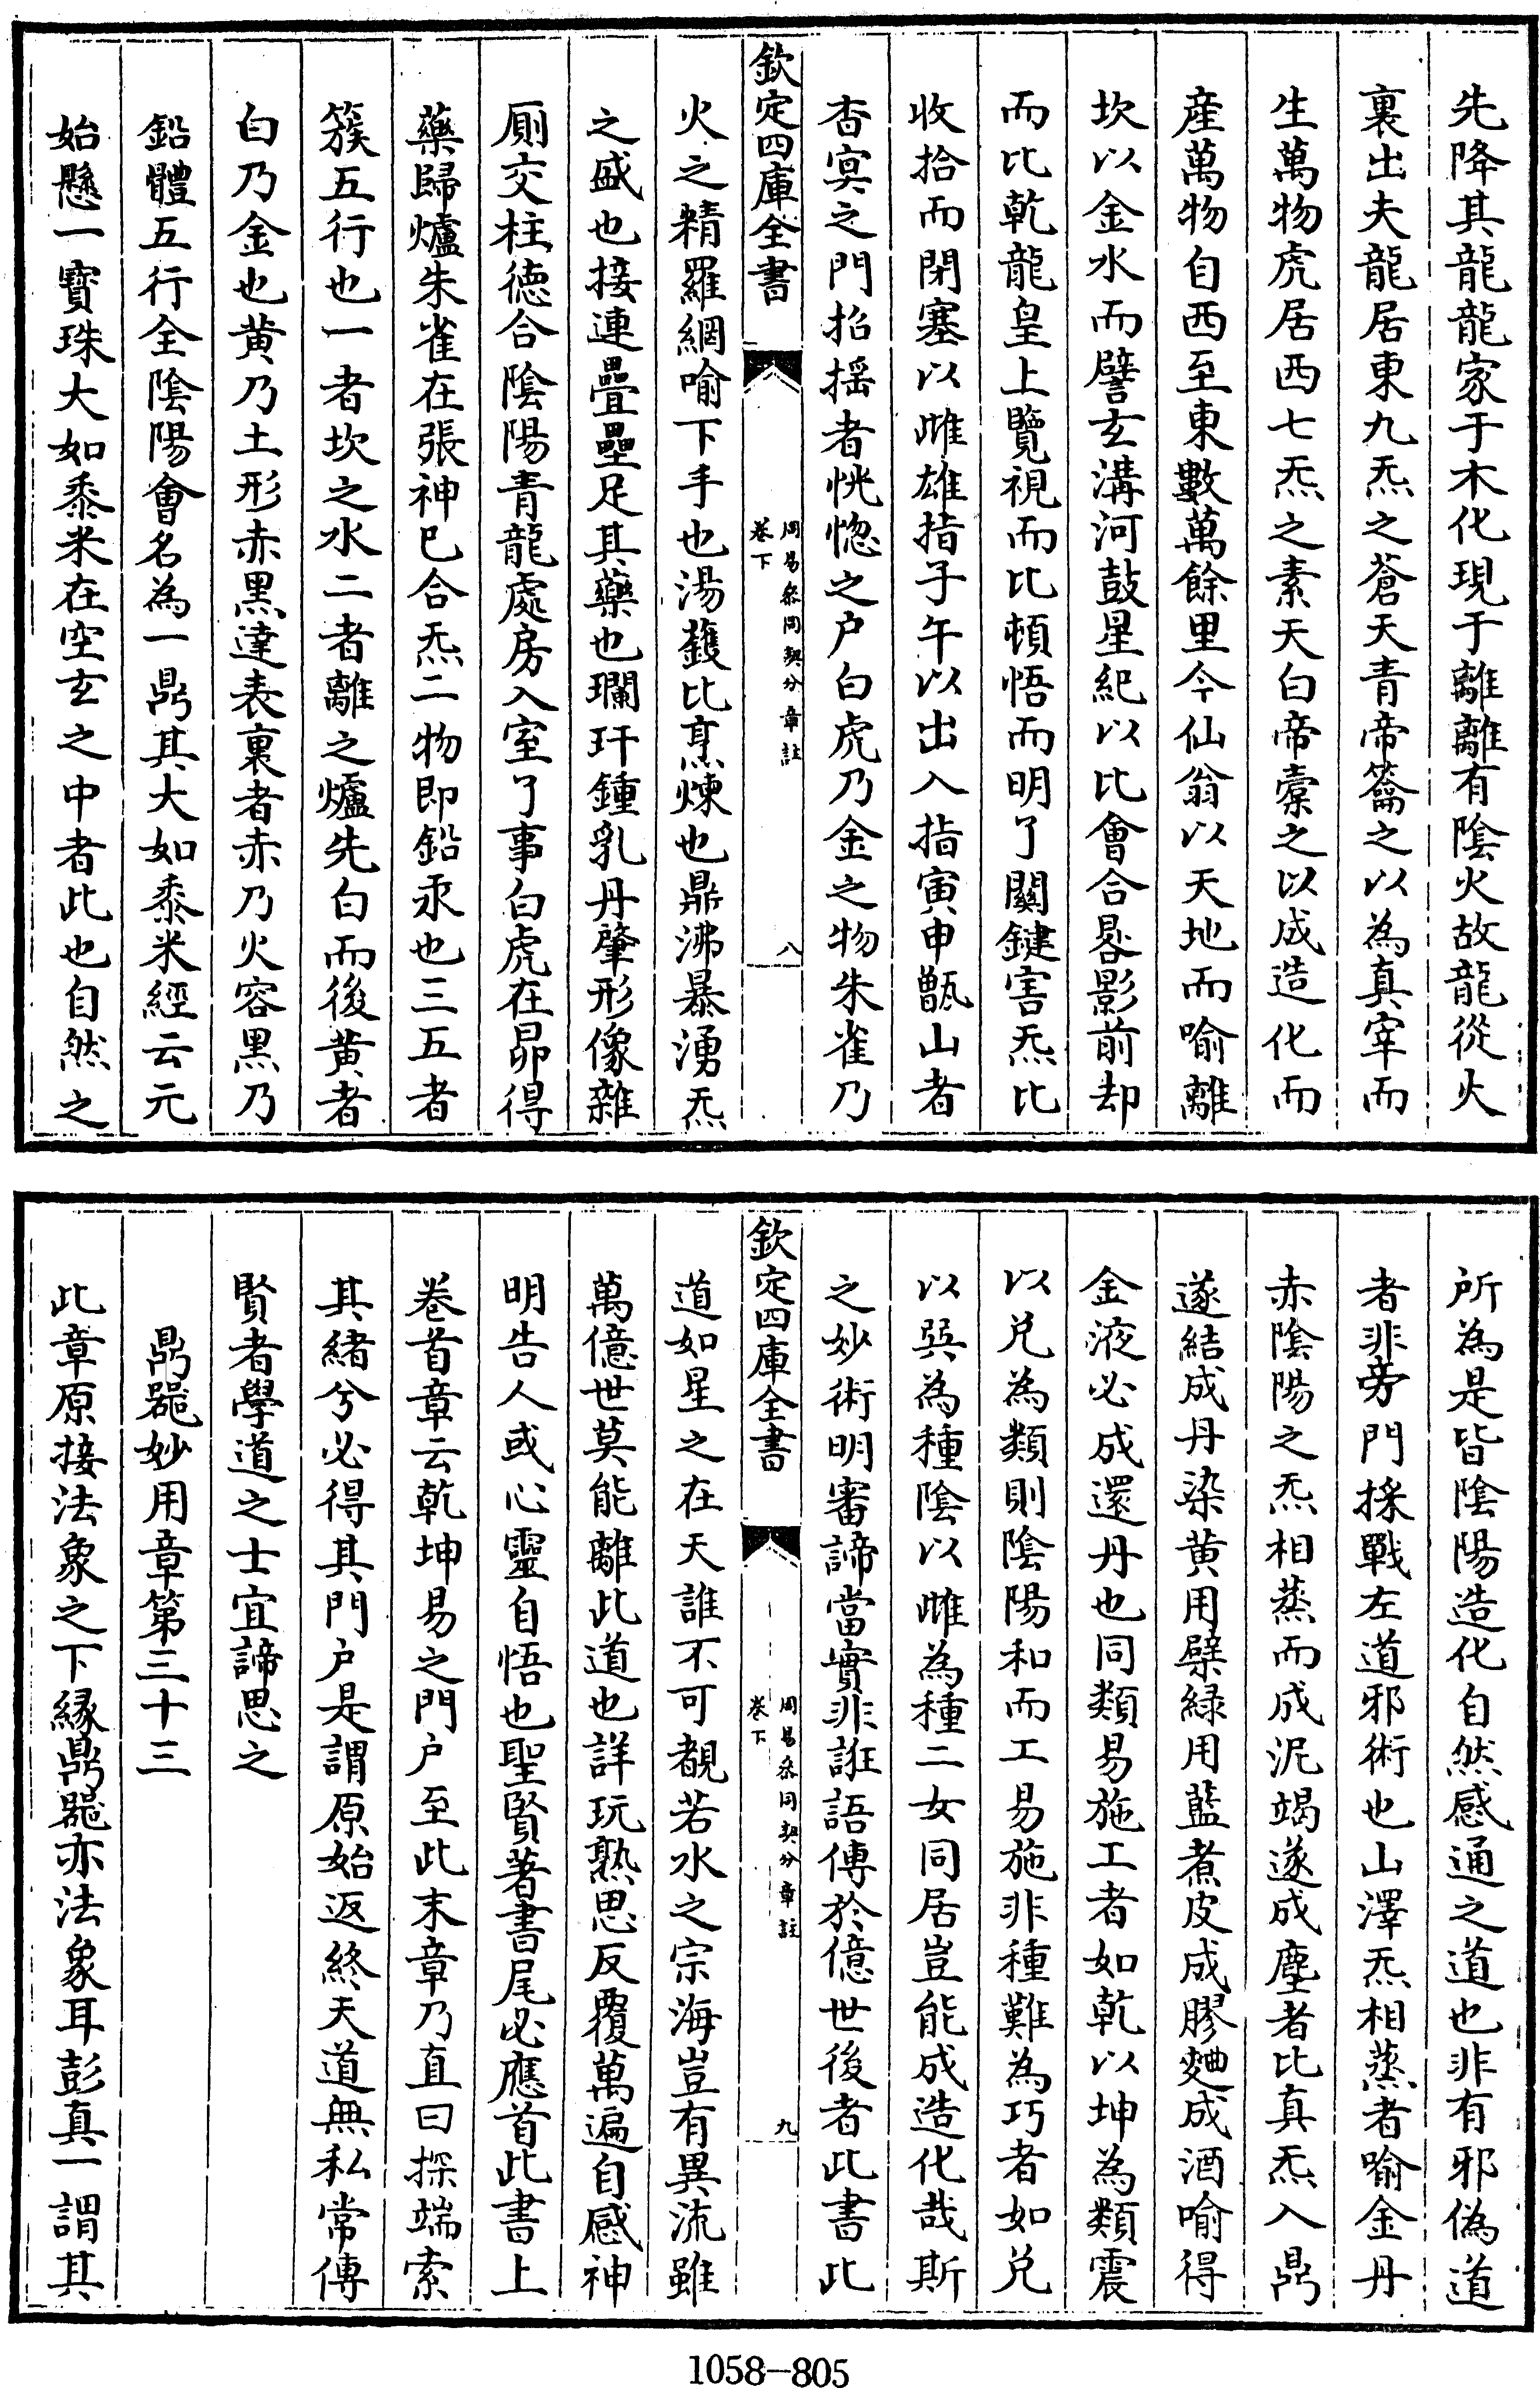 先降其龍龍家于木化現于離離有陰火故龍從火
裏出夫龍居東九炁之蒼天青帝籥之以為真宰而
生萬物虎居西七炁之素天白帝橐之以成造化而
產萬物自西至東數萬餘里今仙翁以天地而喻離
坎以金水而譬玄溝河鼓星紀以比會合晷影前却
而比乾龍皇上覽視而比頓悟而明了關鍵害炁比
收拾而閉塞以雌雄指子午以出入指寅申甑山者
杳冥之門招搖者恍惚之户白虎乃金之物朱雀乃
欽定四庫全書
周易參同契分章註
卷下
八
火之精羅網喻下手也湯鑊比烹煉也鼎沸暴湧炁
之盛也接連疊壘足其藥也瓓玕鍾乳丹肇形像雜
厠交柱德合陰陽青龍處房入室了事白虎在昴得
藥歸爐朱雀在張神已合炁二物即鉛汞也三五者
簇五行也一者坎之水二者離之爐先白而後黄者
白乃金也黄乃土形赤黑達表裏者赤乃火容黑乃
鉛體五行全陰陽會名為一鼎其大如黍米經云元
始懸一寳珠大如黍米在空玄之中者此也自然之
所為是皆陰陽造化自然感通之道也非有邪偽道
者非旁門採戰左道邪術也山澤炁相蒸者喻金丹
赤陰陽之炁相蒸而成泥竭遂成塵者比真炁入鼎
遂結成丹染黄用檗緑用藍煮皮成膠麯成酒喻得
金液必成還丹也同類易施工者如乾以坤為類震
以兑為類則陰陽和而工易施非種難為巧者如兑
以巽為種陰以雌為種二女同居豈能成造化哉斯
之妙術明審諦當實非誑語傳於億世後者此書此
欽定四庫全書
周易參同契分章註
卷下
九
道如星之在天誰不可覩若水之宗海豈有異流雖
萬億世莫能離此道也詳玩熟思反覆萬遍自感神
明告人或心靈自悟也聖賢著書尾必應首此書上
卷首章云乾坤易之門户至此末章乃直曰探端索
其緒兮必得其門户是謂原始返終天道無私常傳
賢者學道之士宜諦思之
鼎器妙用章第三十三
此章原接法象之下緣鼎器亦法象耳彭真一謂其
1058-805